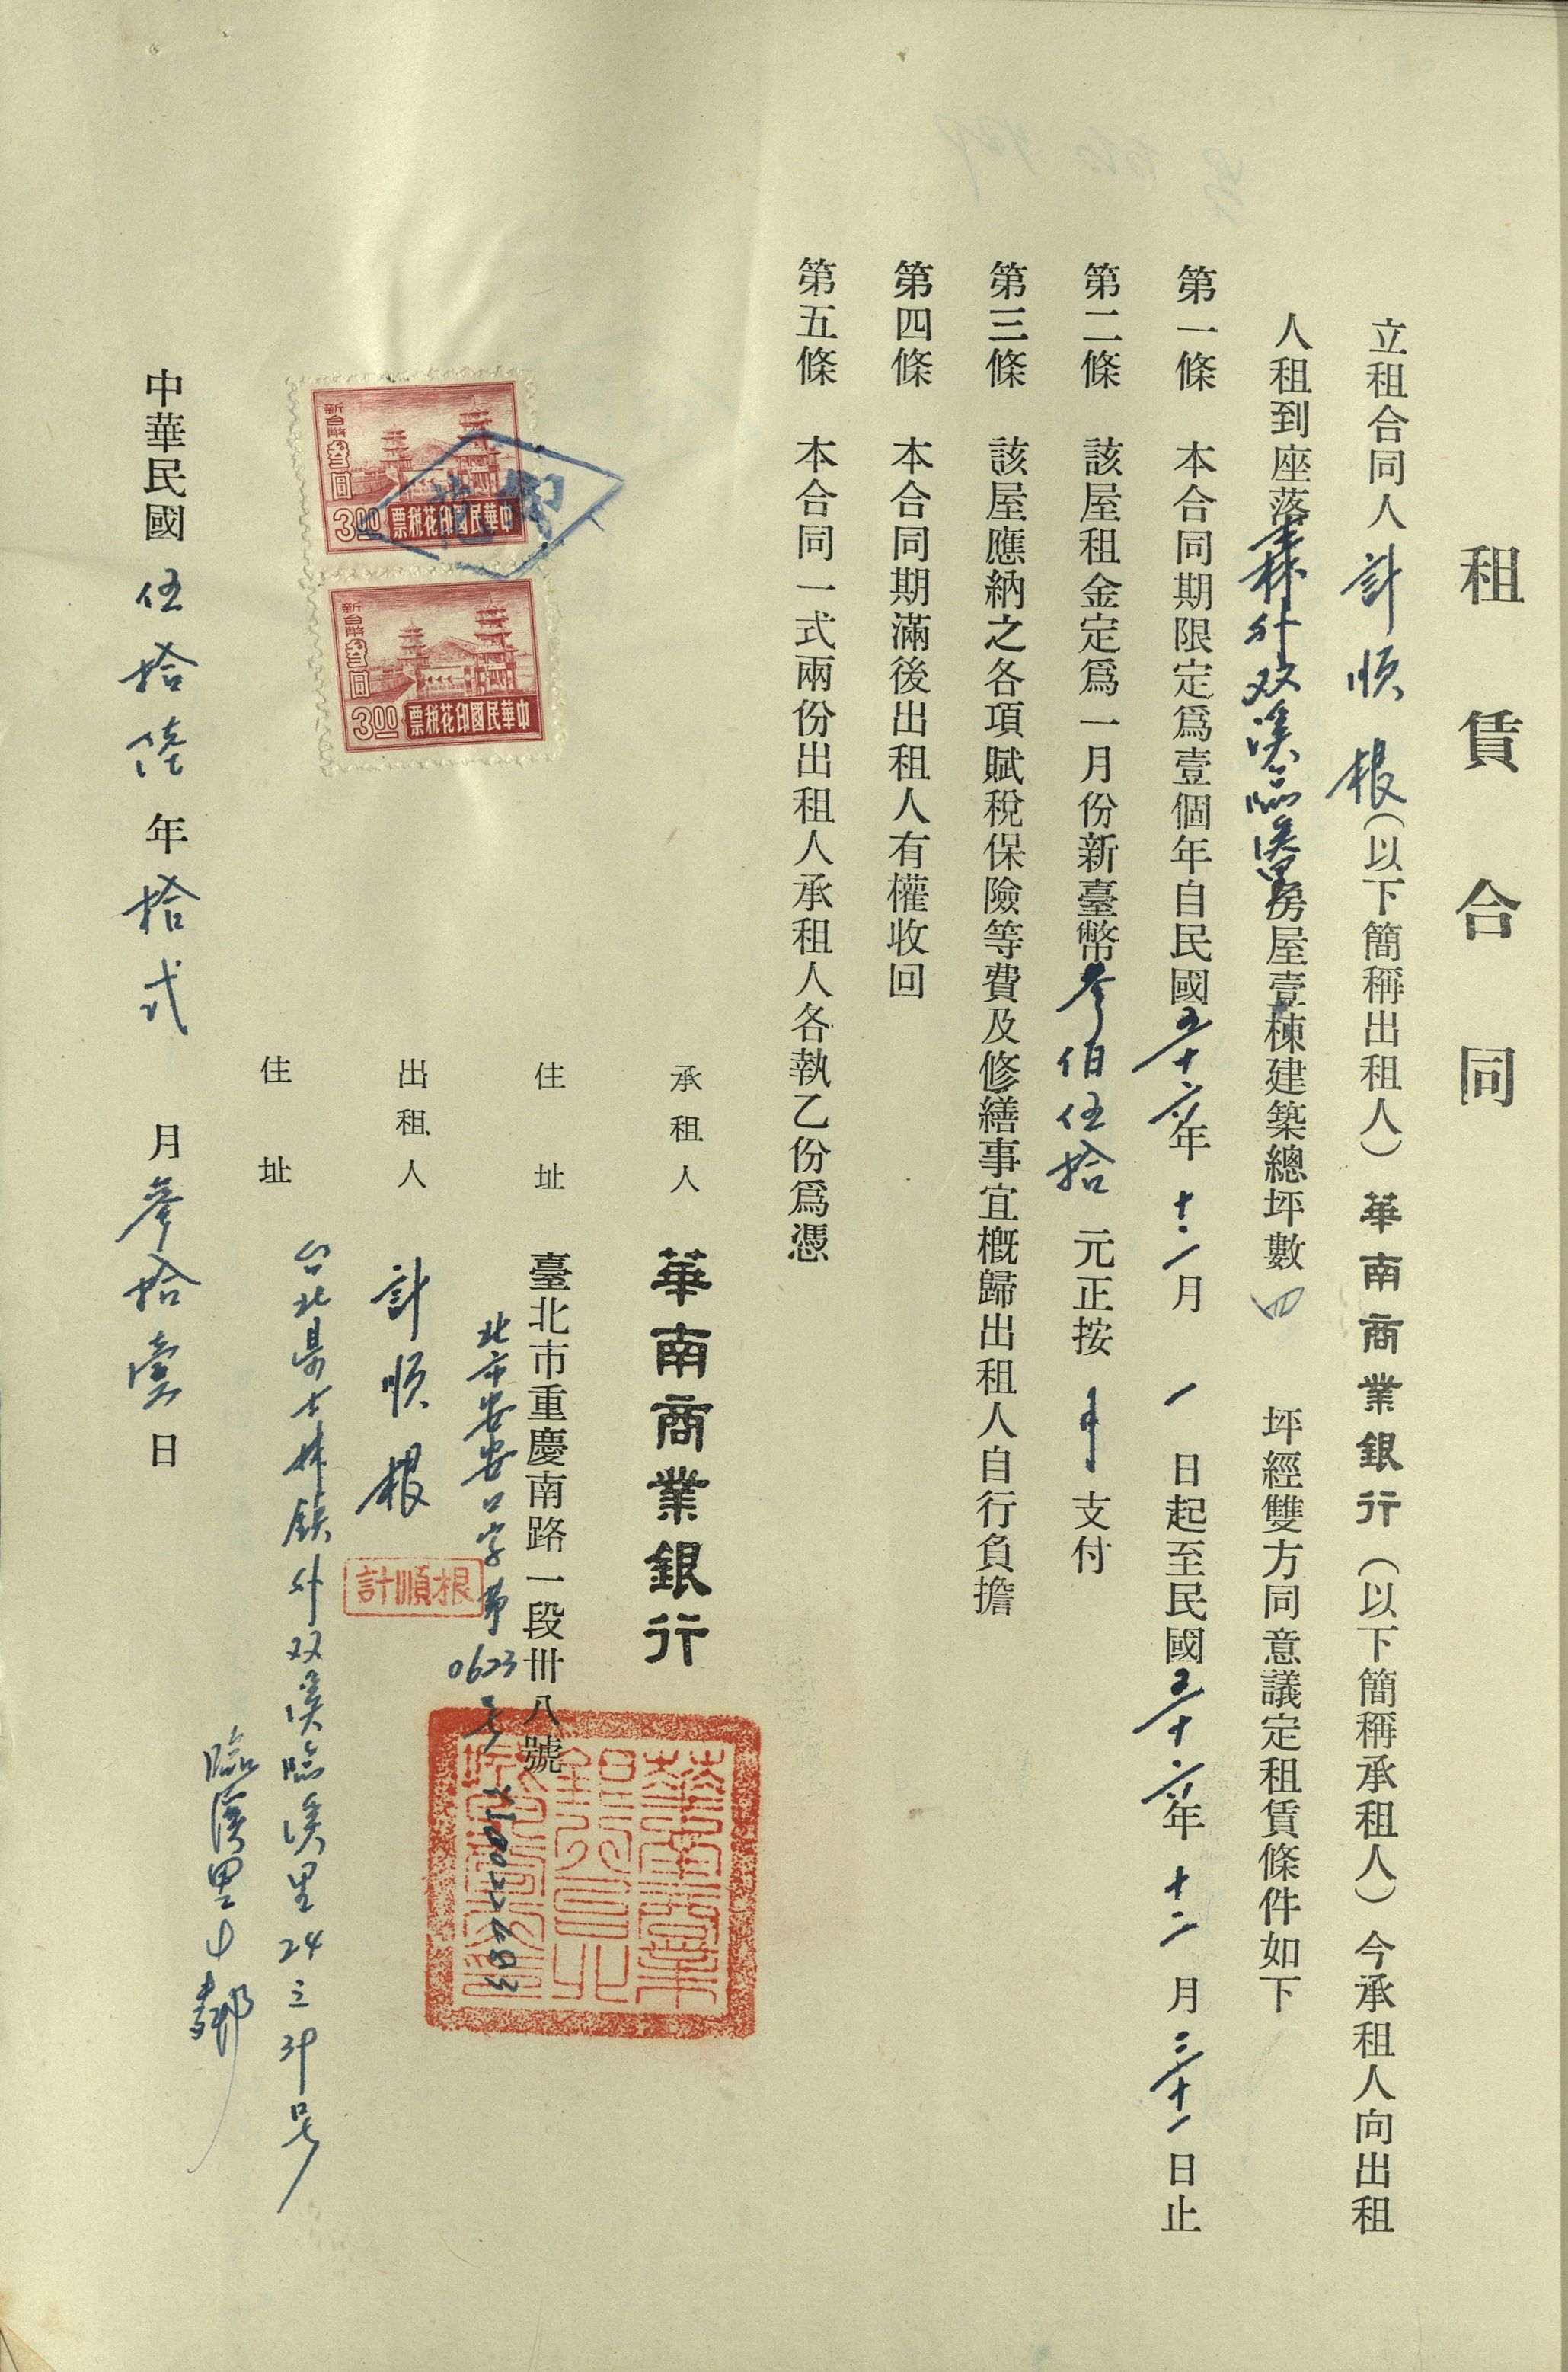 租賃合同
立租合同人計順根（以下簡稱出租人）華南商業銀行（以下簡稱承租人）今承租人向出租
人租到座落士林外双溪臨溪里房屋壹棟建築總坪數四坪經雙方同意議定租賃條件如下
第一條 本合同期限定爲壹個年自民國五十六年十二月一日起至民國五十六年十二月三十一日止
第二條 該屋租金定爲一月份新臺幣參佰伍拾元正按月支付
第三條 該屋應納之各項賦稅保險等費及修繕事宜概歸出租人自行負擔
第四條 本合同期滿後出租人有權收回
第五條 本合同一式兩份出租人承租人各執乙份爲憑
承租人 華南商業銀行
住址 臺北市重慶南路一段卅八號
北市安安口字第0623号
出租人 計順根
計順根
住址 台北县士林鎮外双溪臨溪里24之3号
臨溪里 鄰
新台幣叁圓
3.00 中華民國印花稅票
新台幣叁圓
3.00 中華民國印花稅票
中華民國伍拾陸年拾弍月參拾壹日